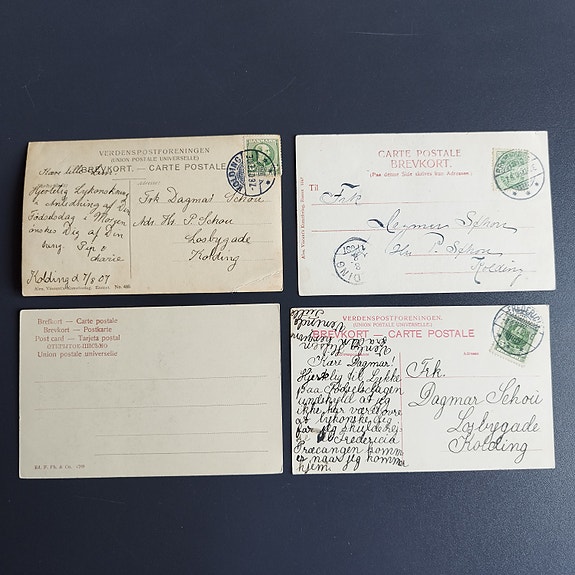 VERDENSPOSTFORENINGEN
(UNION POSTALE UNIVERSELLE)
BREVKORT. — CARTE POSTALE
Kære lille
Hjertelig Lykønskning
i Anledning af Din
Fødselsdag i Morgen
ønskes Dig af Din
Kolding d 7/8 07
Frk Dagmar Schou
Adr. Hr. P. Schou
Losbygade
Kolding
KOLDING
Alex. Vincent's Kunstforlag, Eneret. No. 460
CARTE POSTALE
BREVKORT.
(Paa denne Side skrives kun Adressen.)
Til
Frk
Dagmar Schou
Hr P. Schou
Kolding
Alex Vincent's Kunstforlag, Eneret
Brefkort — Carte postale
Brevkort — Postkarte
Post card — Tarjeta postal
ОТКРЫТОЕ-ПИСЬМО
Union postale universelle
VERDENSPOSTFORENINGEN.
(UNION POSTALE UNIVERSELLE.)
BREVKORT — CARTE POSTALE
Adresse.
Kære Dagmar!
Hjertelig til Lykke
paa Fødselsdagen
undskyld at jeg
ikke har været ovre
at lykønske Dig
Fredericia
er naar jeg komme
hjem.
Frk.
Dagmar Schou
Losbygade
Kolding